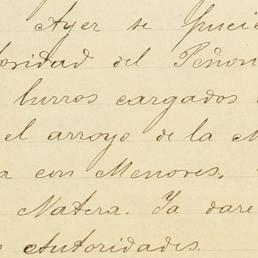 Ayer se pucie
oridad del Peñon
burros cargados
el arroyo de la M
a con Menores.
Natera. Ya dare
Autoridades.